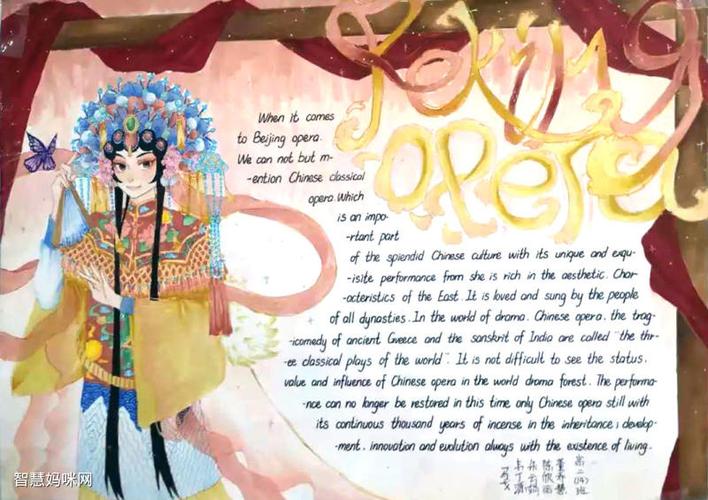 Peking
opera
When it comes
to Beijing opera.
We can not but m-
-ention Chinese classical
opera. Which
is an impo-
-rtant part
of the splendid Chinese culture with its unique and exqu-
-isite performance from she is rich in the aesthetic. Char-
-acteristics of the East. It is loved and sung by the people
of all dynasties. In the world of drama. Chinese opera. the trag-
-icomedy of ancient Greece and the sanskrit of India are called "the thr-
-ee classical plays of the world". It is not difficult to see the status.
value and influence of Chinese opera in the world drama forest. The performa-
-nce can no longer be restored in this time only Chinese opera still with
its continuous thousand years of incense in the inheritance; develop-
-ment. innovation and evolution always with the existence of living.
高二(14)班
智慧妈咪网